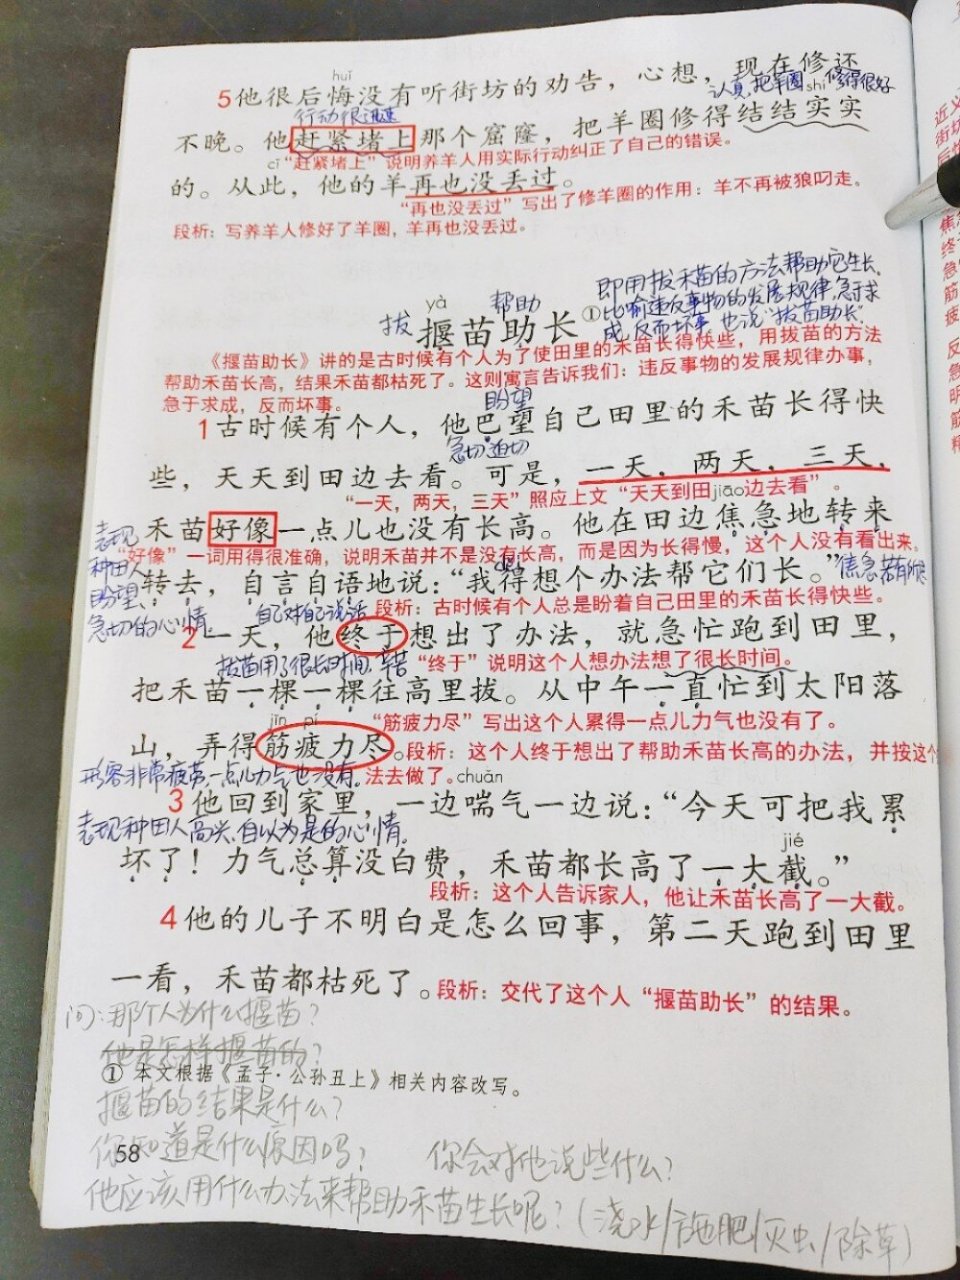 huǐ
5他很后悔没有听街坊的劝告，心想，现在修还
认真，把羊圈修得很好
shi
行动很迅速
不晚。他赶紧堵上那个窟窿，把羊圈修得结结实实
cī“赶紧堵上”说明养羊人用实际行动纠正了自己的错误。
的。从此，他的羊再也没丢过。
“再也没丢过”写出了修羊圈的作用：羊不再被狼叼走。
段析：写养羊人修好了羊圈，羊再也没丢过。
即用拔禾苗的方法帮助它生长。
yà
帮助
比喻违反事物的发展规律，急于求
拔
揠苗助长①
成，反而坏事。也说“拔苗助长”
《揠苗助长》讲的是古时候有个人为了使田里的禾苗长得快些，用拔苗的方法
帮助禾苗长高，结果禾苗都枯死了。这则寓言告诉我们：违反事物的发展规律办事，
急于求成，反而坏事。
盼望
1古时候有个人，他巴望自己田里的禾苗长得快
急切 迫切
些，天天到田边去看。可是，一天，两天，三天，
“一天，两天，三天”照应上文“天天到田jiāo边去看”。
表现
禾苗好像一点儿也没有长高。他在田边焦急地转来
“好像”一词用得很准确，说明禾苗并不是没有长高，而是因为长得慢，这个人没有看出来。
种田人
转去，自言自语地说：“我得想个办法帮它们长。”
盼望、
自己对自己说话
段析：古时候有个人总是盼着自己田里的禾苗长得快些。
急切的心情。
2一天，他终于想出了办法，就急忙跑到田里，
拔苗用了很长时间，
“终于”说明这个人想办法想了很长时间。
把禾苗一棵一棵往高里拔。从中午一直忙到太阳落
jīn pí
“筋疲力尽”写出这个人累得一点儿力气也没有了。
山，弄得筋疲力尽。段析：这个人终于想出了帮助禾苗长高的办法，并按这个
形容非常疲劳，一点儿力气也没有。
法去做了。chuǎn
3他回到家里，一边喘气一边说：“今天可把我累
表现种田人高兴、自以为是的心情。
jié
坏了！力气总算没白费，禾苗都长高了一大截。”
段析：这个人告诉家人，他让禾苗长高了一大截。
4他的儿子不明白是怎么回事，第二天跑到田里
一看，禾苗都枯死了。段析：交代了这个人“揠苗助长”的结果。
问：那个人为什么揠苗？
他是怎样揠苗的？
① 本文根据《孟子·公孙丑上》相关内容改写。
揠苗的结果是什么？
你知道是什么原因吗？ 你会对他说些什么？
58
他应该用什么办法来帮助禾苗生长呢？（浇水/施肥/灭虫/除草）
近义
街坊